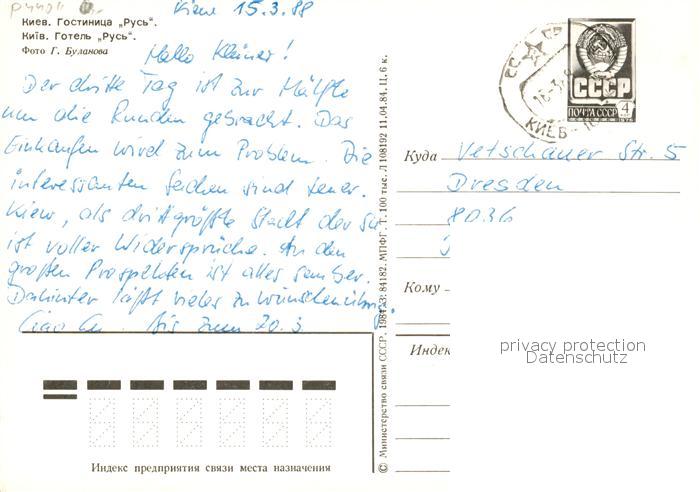 Kiew 15.3.88
Киев. Гостиница „Русь".
Київ. Готель „Русь".
Фото Г. Буланова
Hallo Kleiner!
Der dritte Tag ist zur Hälfte
um die Runden gebracht. Das
Einkaufen wird zum Problem. Die
interessanten Sachen sind teuer.
Kiew, als drittgrößte Stadt der SU
ist voller Widersprüche. An den
großen Prospekten ist alles sauber.
Dahinter läßt vieles zu wünschen übrig.
Ciao Bis zum 20.3.
СССР
ПОЧТА СССР
4
КИЕВ
Куда Vetschauer Str. 5
Dresden
8036
Кому
Индек
privacy protection
Datenschutz
Индекс предприятия связи места назначения
© Министерство связи СССР. 1984. З. 84182. МПФГ. Т. 100 тыс. Л 108192 11.04.84. Ц. 6 к.